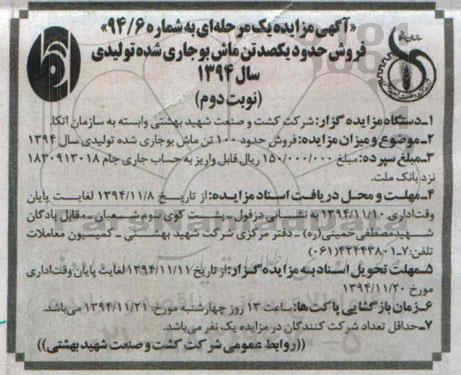 «آگهی مزایده یک مرحله‌ای به شماره ۹۴/۶»
فروش حدود یکصد تن ماش بوجاری شده تولیدی
سال ۱۳۹۴
(نوبت دوم)
۱ـ دستگاه مزایده گزار: شرکت کشت و صنعت شهید بهشتی وابسته به سازمان اتکا.
۲ـ موضوع و میزان مزایده: فروش حدود ۱۰۰ تن ماش بوجاری شده تولیدی سال ۱۳۹۴
۳ـ مبلغ سپرده: مبلغ ۱۵۰/۰۰۰/۰۰۰ ریال قابل واریز به حساب جاری جام ۱۸۳۰۹۱۳۰۱۸
نزد بانک ملت.
۴ـ مهلت و محل دریافت اسناد مزایده: از تاریخ ۱۳۹۴/۱۱/۸ لغایت پایان
وقت اداری ۱۳۹۴/۱۱/۱۰ به نشانی دزفول ـ پشت کوی سوم شعبان ـ مقابل پادگان
شهید مصطفی خمینی (ره) ـ دفتر مرکزی شرکت شهید بهشتی ـ کمیسیون معاملات
تلفن: ۷ـ۴۲۴۴۳۸۰۱ (۰۶۱)
۵ـ مهلت تحویل اسناد به مزایده گزار: از تاریخ ۱۳۹۴/۱۱/۱۱ لغایت پایان وقت اداری
مورخ ۱۳۹۴/۱۱/۲۰
۶ـ زمان بازگشایی پاکت‌ها: ساعت ۱۳ روز چهارشنبه مورخ ۱۳۹۴/۱۱/۲۱ می‌باشد.
۷ـ حداقل تعداد شرکت کنندگان در مزایده یک نفر می‌باشد.
((روابط عمومی شرکت کشت و صنعت شهید بهشتی))